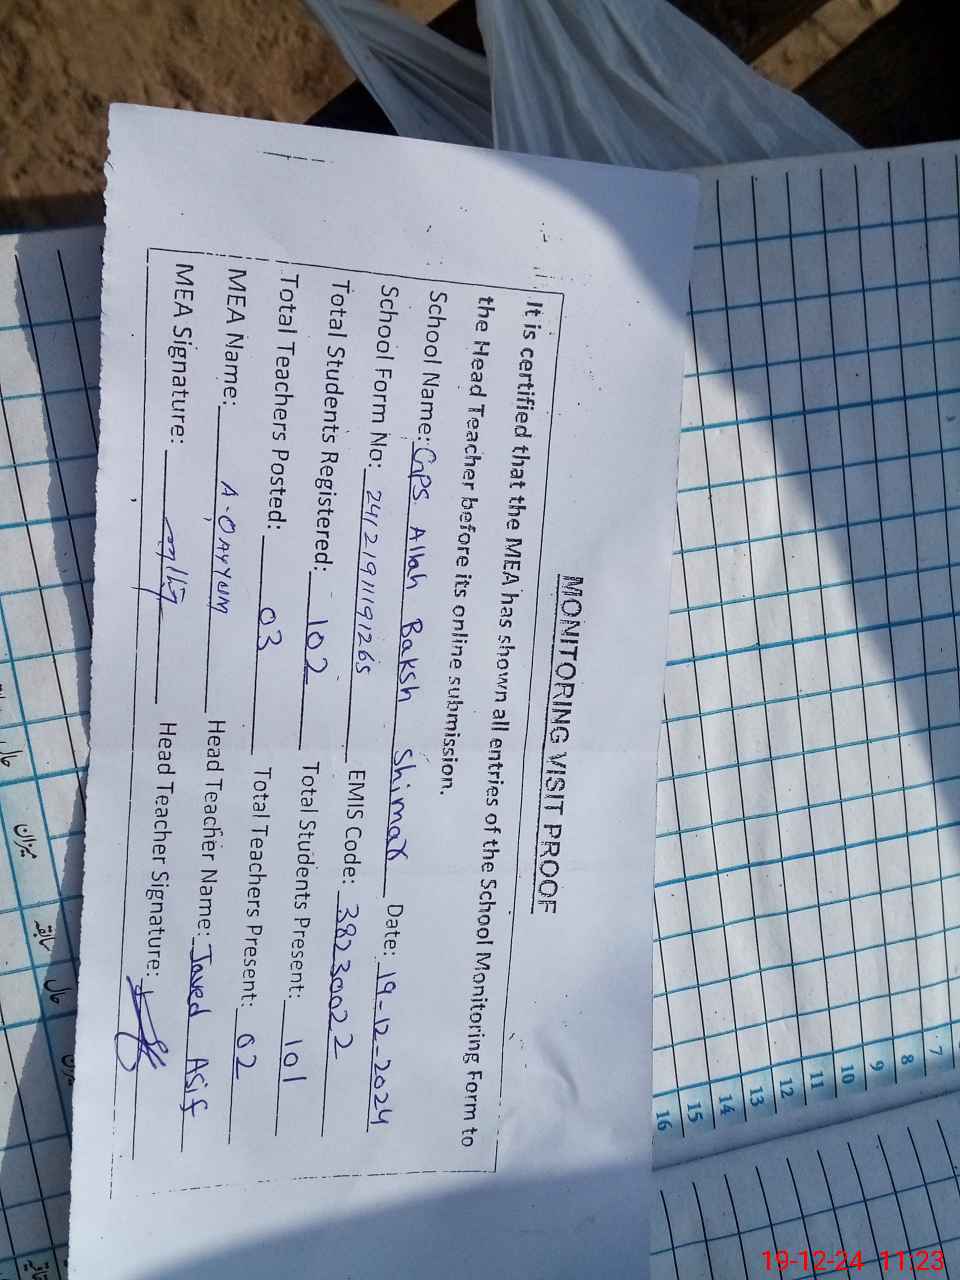 MONITORING VISIT PROOF
It is certified that the MEA has shown all entries of the School Monitoring Form to
the Head Teacher before its online submission.
School Name: GPS Allah Baksh Shimax Date: 19-12-2024
School Form No: 24121911191265 EMIS Code: 38230022
Total Students Registered: 102 Total Students Present: 101
Total Teachers Posted: 03 Total Teachers Present: 02
MEA Name: A-QAYYUM Head Teacher Name: Javed Asif
MEA Signature: Head Teacher Signature:
7
8
9
10
11
12
13
14
15
16
میزان
سابقہ
حال
19-12-24 11:23